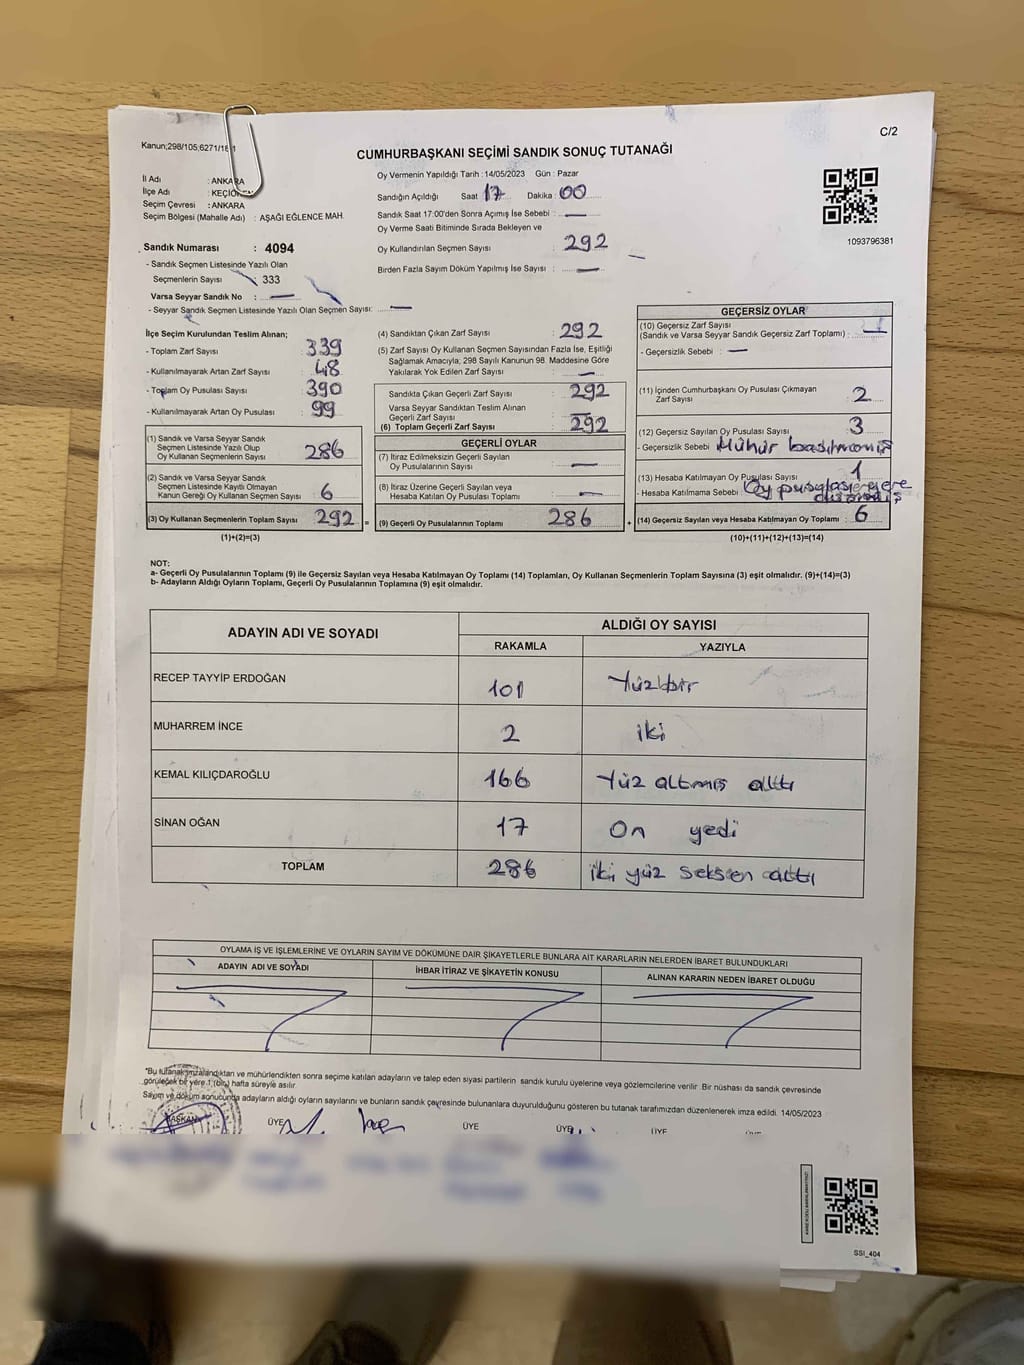 C/2
Kanun;298/105;6271/18
CUMHURBAŞKANI SEÇİMİ SANDIK SONUÇ TUTANAĞI
İl Adı : ANKARA
İlçe Adı : KEÇİÖREN
Seçim Çevresi : ANKARA
Seçim Bölgesi (Mahalle Adı) : AŞAĞI EĞLENCE MAH.
Oy Vermenin Yapıldığı Tarih : 14/05/2023 Gün : Pazar
Sandığın Açıldığı Saat 17 Dakika : 00
Sandık Saat 17:00'den Sonra Açımış İse Sebebi : —
Oy Verme Saati Bitiminde Sırada Bekleyen ve
Oy Kullandırılan Seçmen Sayısı : 292
Birden Fazla Sayım Döküm Yapılmış İse Sayısı : —
1093796381
Sandık Numarası : 4094
- Sandık Seçmen Listesinde Yazılı Olan
Seçmenlerin Sayısı : 333
Varsa Seyyar Sandık No : —
- Seyyar Sandık Seçmen Listesinde Yazılı Olan Seçmen Sayısı: —
İlçe Seçim Kurulundan Teslim Alınan;
- Toplam Zarf Sayısı : 339
- Kullanılmayarak Artan Zarf Sayısı : 48
- Toplam Oy Pusulası Sayısı : 390
- Kullanılmayarak Artan Oy Pusulası : 99
(1) Sandık ve Varsa Seyyar Sandık
Seçmen Listesinde Yazılı Olup
Oy Kullanan Seçmenlerin Sayısı : 286
(2) Sandık ve Varsa Seyyar Sandık
Seçmen Listesinde Kayıtlı Olmayan
Kanun Gereği Oy Kullanan Seçmen Sayısı : 6
(3) Oy Kullanan Seçmenlerin Toplam Sayısı : 292 =
(1)+(2)=(3)
(4) Sandıktan Çıkan Zarf Sayısı : 292
(5) Zarf Sayısı Oy Kullanan Seçmen Sayısından Fazla İse, Eşitliği
Sağlamak Amacıyla; 298 Sayılı Kanunun 98. Maddesine Göre
Yakılarak Yok Edilen Zarf Sayısı : —
Sandıkta Çıkan Geçerli Zarf Sayısı : 292
Varsa Seyyar Sandıktan Teslim Alınan
Geçerli Zarf Sayısı : —
(6) Toplam Geçerli Zarf Sayısı : 292
GEÇERLİ OYLAR
(7) İtiraz Edilmeksizin Geçerli Sayılan
Oy Pusulalarının Sayısı : —
(8) İtiraz Üzerine Geçerli Sayılan veya
Hesaba Katılan Oy Pusulası Toplamı : —
(9) Geçerli Oy Pusulalarının Toplamı 286 +
GEÇERSİZ OYLAR
(10) Geçersiz Zarf Sayısı
(Sandık ve Varsa Seyyar Sandık Geçersiz Zarf Toplamı) : —
- Geçersizlik Sebebi : —
(11) İçinden Cumhurbaşkanı Oy Pusulası Çıkmayan
Zarf Sayısı : 2
(12) Geçersiz Sayılan Oy Pusulası Sayısı : 3
- Geçersizlik Sebebi : Mühür basılmamış
(13) Hesaba Katılmayan Oy Pusulası Sayısı : 1
- Hesaba Katılmama Sebebi : Oy
(14) Geçersiz Sayılan veya Hesaba Katılmayan Oy Toplamı : 6
(10)+(11)+(12)+(13)=(14)
NOT:
a- Geçerli Oy Pusulalarının Toplamı (9) ile Geçersiz Sayılan veya Hesaba Katılmayan Oy Toplamı (14) Toplamları, Oy Kullanan Seçmenlerin Toplam Sayısına (3) eşit olmalıdır. (9)+(14)=(3)
b- Adayların Aldığı Oyların Toplamı, Geçerli Oy Pusulalarının Toplamına (9) eşit olmalıdır.
ADAYIN ADI VE SOYADI
ALDIĞI OY SAYISI
RAKAMLA YAZIYLA
RECEP TAYYİP ERDOĞAN 101 Yüzbir
MUHARREM İNCE 2 iki
KEMAL KILIÇDAROĞLU 166 Yüz altmış altı
SİNAN OĞAN 17 On yedi
TOPLAM 286 iki yüz seksen altı
OYLAMA İŞ VE İŞLEMLERİNE VE OYLARIN SAYIM VE DÖKÜMÜNE DAİR ŞİKAYETLERLE BUNLARA AİT KARARLARIN NELERDEN İBARET BULUNDUKLARI
ADAYIN ADI VE SOYADI İHBAR İTİRAZ VE ŞİKAYETİN KONUSU ALINAN KARARIN NEDEN İBARET OLDUĞU
*Bu tutanak imzalandıktan ve mühürlendikten sonra seçime katılan adayların ve talep eden siyasi partilerin sandık kurulu üyelerine veya gözlemcilerine verilir. Bir nüshası da sandık çevresinde
görülecek bir yere 1 (bir) hafta süreyle asılır.
Sayım ve döküm sonucunda adayların aldığı oyların sayılarını ve bunların sandık çevresinde bulunanlara duyurulduğunu gösteren bu tutanak tarafımızdan düzenlenerek imza edildi. 14/05/2023
BAŞKAN ÜYE ÜYE ÜYE ÜYE
SSİ_404